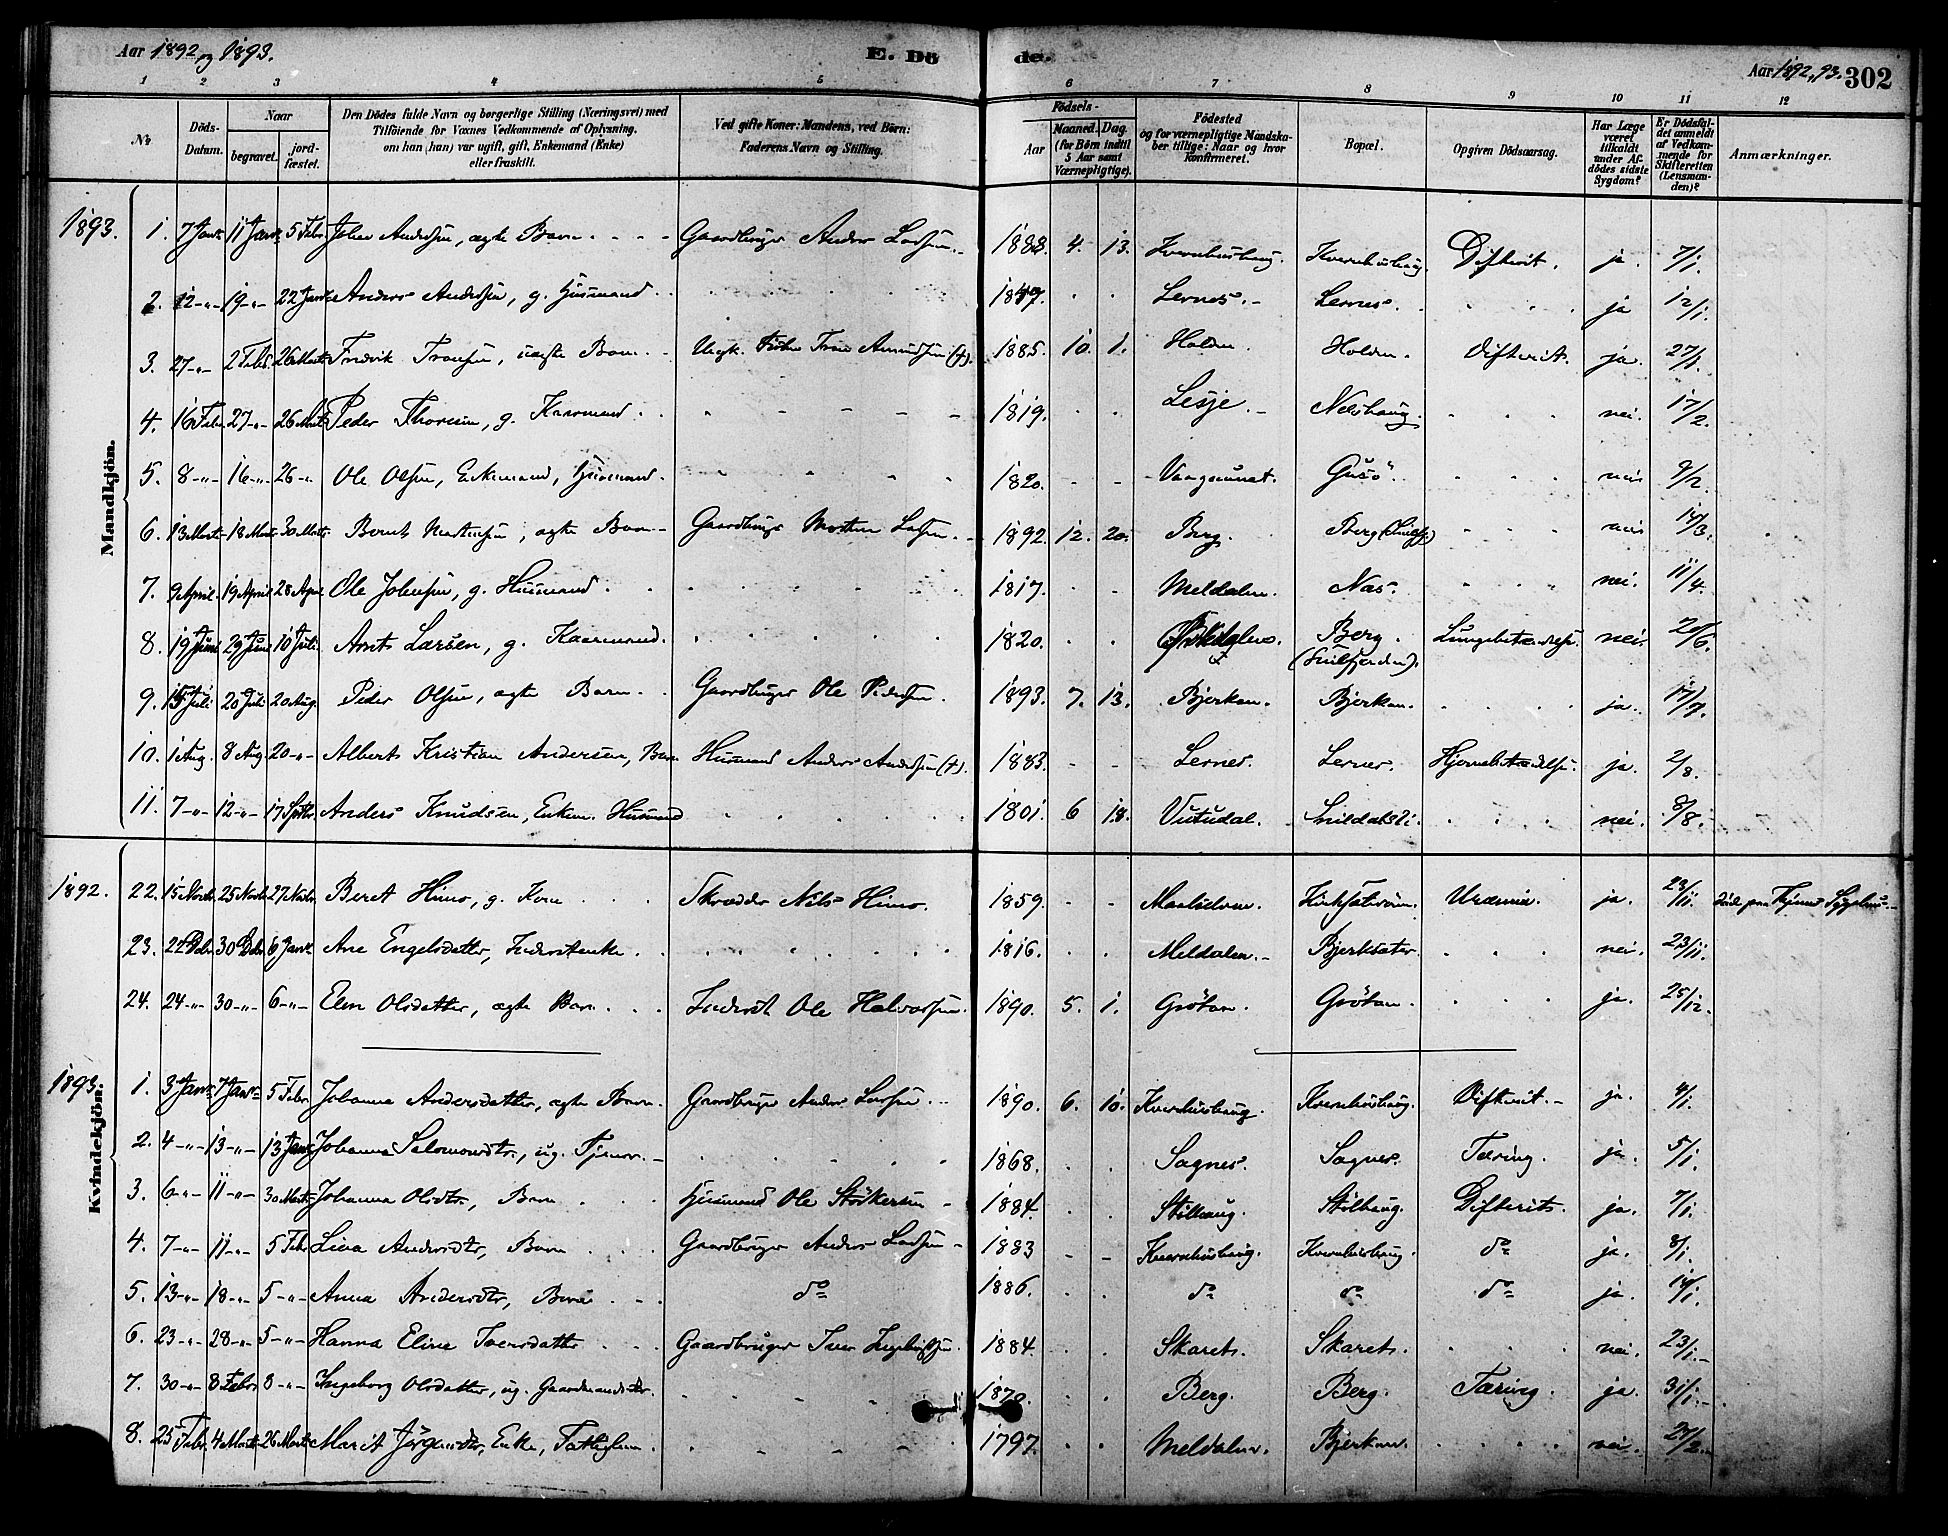 Aar 1892 og 1893.
E. Dö
de.
Aar 1892, 93.
302
1 2 3 4 5 6 7 8 9 10 11 12
No
Döds-Datum.
Naar
begravet.
jordfæstet.
Den Dödes fulde Navn og borgerlige Stilling (Næringsvei) med
Tilföiende for Voxnes Vedkommende af Oplysning,
om han (hun) var ugift, gift, Enkemand (Enke)
eller fraskilt.
Ved gifte Koner: Mandens, ved Börn:
Faderens Navn og Stilling.
Födsels-
Aar
Maaned. Dag.
(for Börn indtil
5 Aar samt
Værnepligtige).
Födested
og for værnepligtige Mandskaber tillige: Naar og hvor
konfirmeret.
Bopæl.
Opgiven Dödsaarsag.
Har Læge
været
tilkaldt
under Afdödes sidste
Sygdom?
Er Dödsfaldet anmeldt
af Vedkommende for
Skifteretten
(Lensmanden)?
Anmærkninger.
Mandkjön.
1893. 1. 7 Janr 11 Janr 5 Febr. Johan Andersen, ægte Barn. Gaardbruger Anders Larsen. 1888 4. 13. Kvernhushaug. Kvernhushaug. Difterit. ja. 7/1.
2. 12 -"- 19 -"- 22 Janr Anders Andersen, g. Husmand 1847. Lernes. Lernes. ja 12/1.
3. 27 -"- 2 Febr. 26 Marts Fredrik Tronsen, uægte Barn. Ungk. Tron Amundsen (+). 1885. 10. 1. Holden. Holden. Difterit. ja. 27/1.
4. 16 Febr. 27 -"- 26 Marts Peder Thoresen, g. Kaarmand. 1819. Lesje. Nelshaug. nei. 17/2.
5. 8 -"- 16 -"- 26 -"- Ole Olsen, Enkemand, Husmand. 1820. Gusö. nei 9/2.
6. 13 Marts 18 Marts 30 Marts Bernt Mortensen, ægte Barn Gaardbruger Morten Larsen. 1892. 12. 20. Berg. Berg nei 14/3.
7. 9 April. 19 April 28 April Ole Johnsen, g. Husmand. 1817. Meldalen. Næs. nei. 11/4.
8. 19 Juni 29 Juni 10 Juli. Arnt Larsen, g. Kaarmand. 1820. Berg. (Snilfjorden). Lungebetændelse. nei. 20/6.
9. 15 Juli 20 Juli 20 Aug. Peder Olsen, ægte Barn. Gaardbruger Ole Pedersen. 1893. 7. 13. Bjerkan. Bjerkan. ja. 17/7.
10. 1 Aug. 8 Aug. 20 -"- Albert Kristian Andersen, Barn Husmand Anders Andersen (+). 1883. Lernes. Lernes. Hjernebetændelse. ja. 2/8.
11. 7 -"- 12 -"- 17 Septbr. Anders Knudsen, Enkem. Husmand 1801. 6 18. Vutudal. Snildalsli. nei. 8/8.
Kvindekjön.
1892. 22. 15 Novbr. 25 Novbr 27 Novbr. Beret Himo, g. Kone Skrædder Nils Himo. 1859. Uræmia. ja. 23/11. död paa Sygehus.
23. 22 Debr. 30 Debr 6 Janr Ane Engelsdatter, Inderstenke 1816. Meldalen. Bjerksæter. nei. 23/11.
24. 24 -"- 30 -"- 6 -"- Elen Olsdatter, ægte Barn Inderst Ole Halvorsen. 1890. 5. 1. Grötan. Grötan. ja. 25/12.
1893. 1. 3 Janr. 7 Janr. 5 Febr. Johanna Andersdatter, ægte Barn. Gaardbruger Anders Larsen 1890. 6. 10. Kvernhushaug. Kvernhushaug. Difterit. ja. 4/1.
2. 4 -"- 13 -"- 13 Janr Johanna Salomonsdtr., ug. Tjener. 1868. Sagnes. Sagnes. Tæring. ja. 5/1.
3. 6 -"- 11 -"- 30 Marts Johanna Olsdtr., Barn Husmand Ole Störkersen 1884. Stölhaug. Stölhaug. Difterit. ja. 7/1.
4. 7 -"- 11 -"- 5 Febr Lina Andersdtr, Barn Gaardbruger Anders Larsen 1883 Kvernhushaug. Kvernhushaug. do ja. 8/1.
5. 13 -"- 18 -"- 5 -"- Anna Andersdtr, Barn do 1886. do do do ja. 14/1.
6. 23 -"- 28 -"- 5 -"- Hanna Eline Iversdatter Gaardbruger Iver Ingebrigtsen. 1884. Skaret. Skaret. nei. 23/1.
7. 30 -"- 8 Febr 8 -"- Ingeborg Olsdatter, ug. Gaardmandsdtr. 1870. Berg. Berg. Tæring. ja. 31/1.
8. 25 Febr. 4 Marts 26 Marts Marit Jörgensdtr, Enke, Fattiglem. 1797. Meldalen. Bjerkan. nei. 27/2.